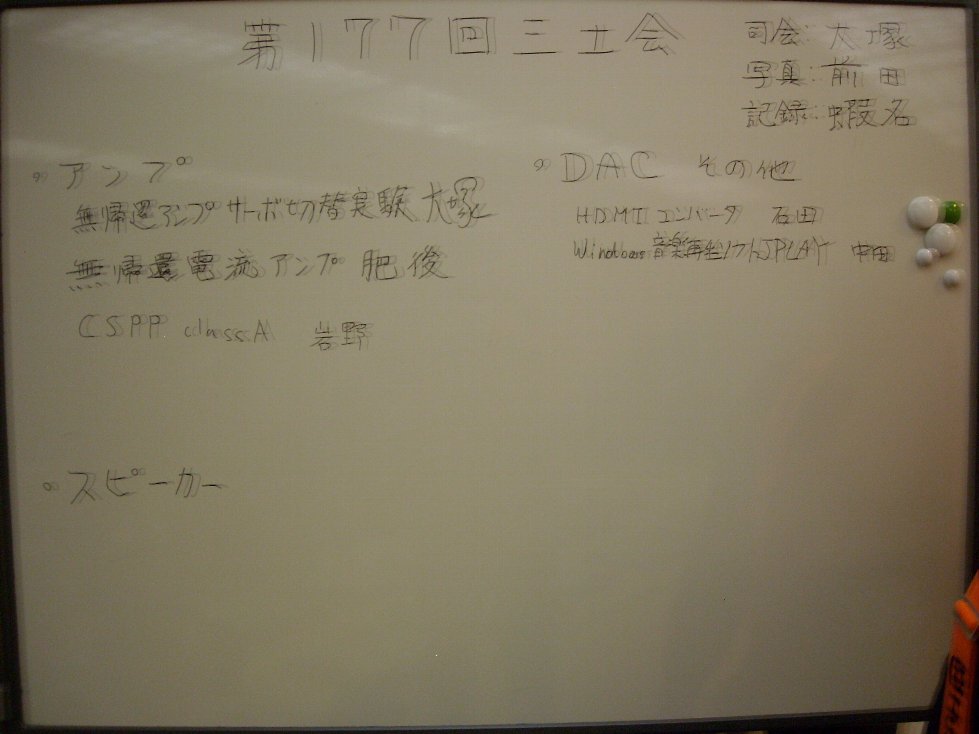 第177回三土会
司会:大塚
写真:前田
記録:蝦名
アンプ
無帰還アンプサーボ切替実験 大塚
無帰還電流アンプ 肥後
CSPP classA 岩野
スピーカー
DAC その他
HDMIコンバータ 石田
Windows音楽再生ソフトJPLAY 中田